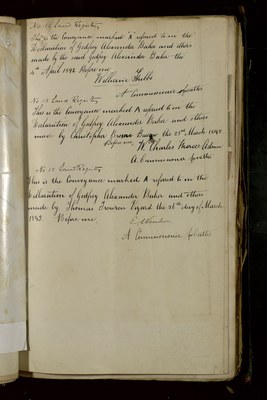 No 18 Land Registry
This is the Conveyance marked "A" referred to in the
Declaration of Godfrey Alexander Baker and others
made by the said Godfrey Alexander Baker the
4th April 1893 Before me
William
A Commissioner for Oaths
No 18 Land Registry
This is the Conveyance marked A referred to in the
Declaration of Godfrey Alexander Baker and others
made by Christopher the 25th March 1893
Before me, W. Charles
A Commissioner for Oaths
No 18 Land Registry
This is the Conveyance marked A referred to in the
Declaration of Godfrey Alexander Baker and others
made by Thomas the 28th day of March
1893 Before me
A Commissioner for Oaths